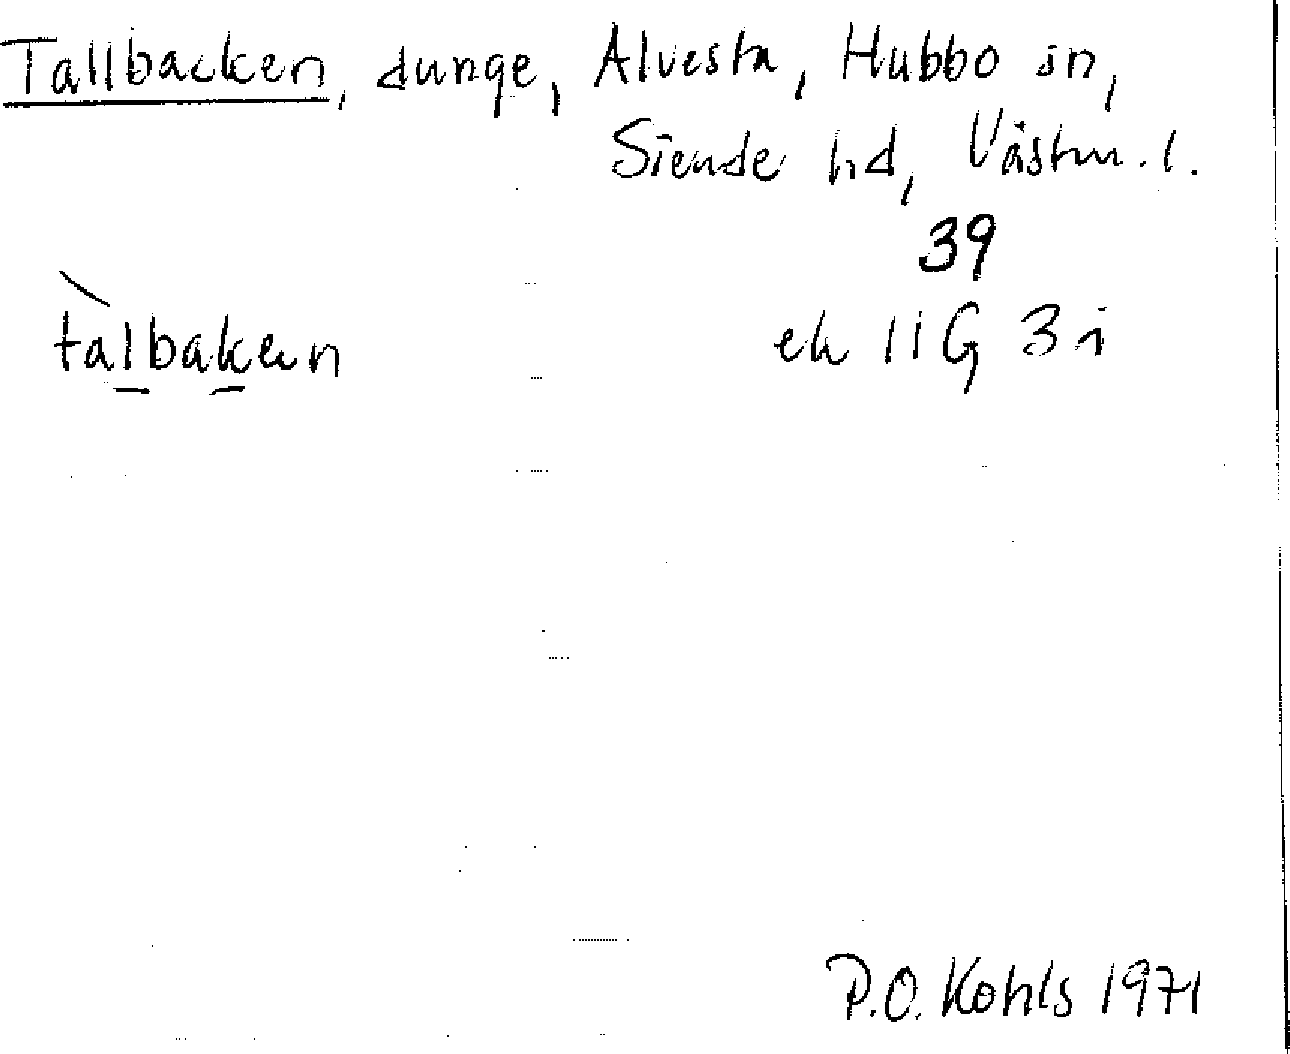 Tallbacken, dunge, Alvesta, Hubbo sn,
Siende hd, Västm. l.
39
tàlbaken
ek 11G 3i
P.O. Kohls 1971